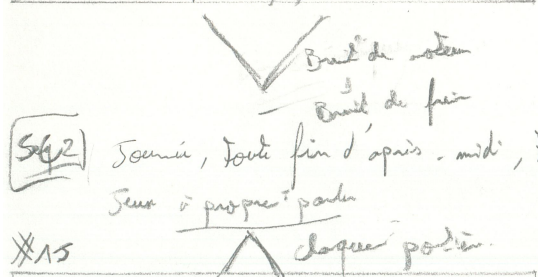 Bruit de moteur
Bruit de frein
Seq 2 Journée, toute fin d'après-midi,
à proprement
15
claque portière.